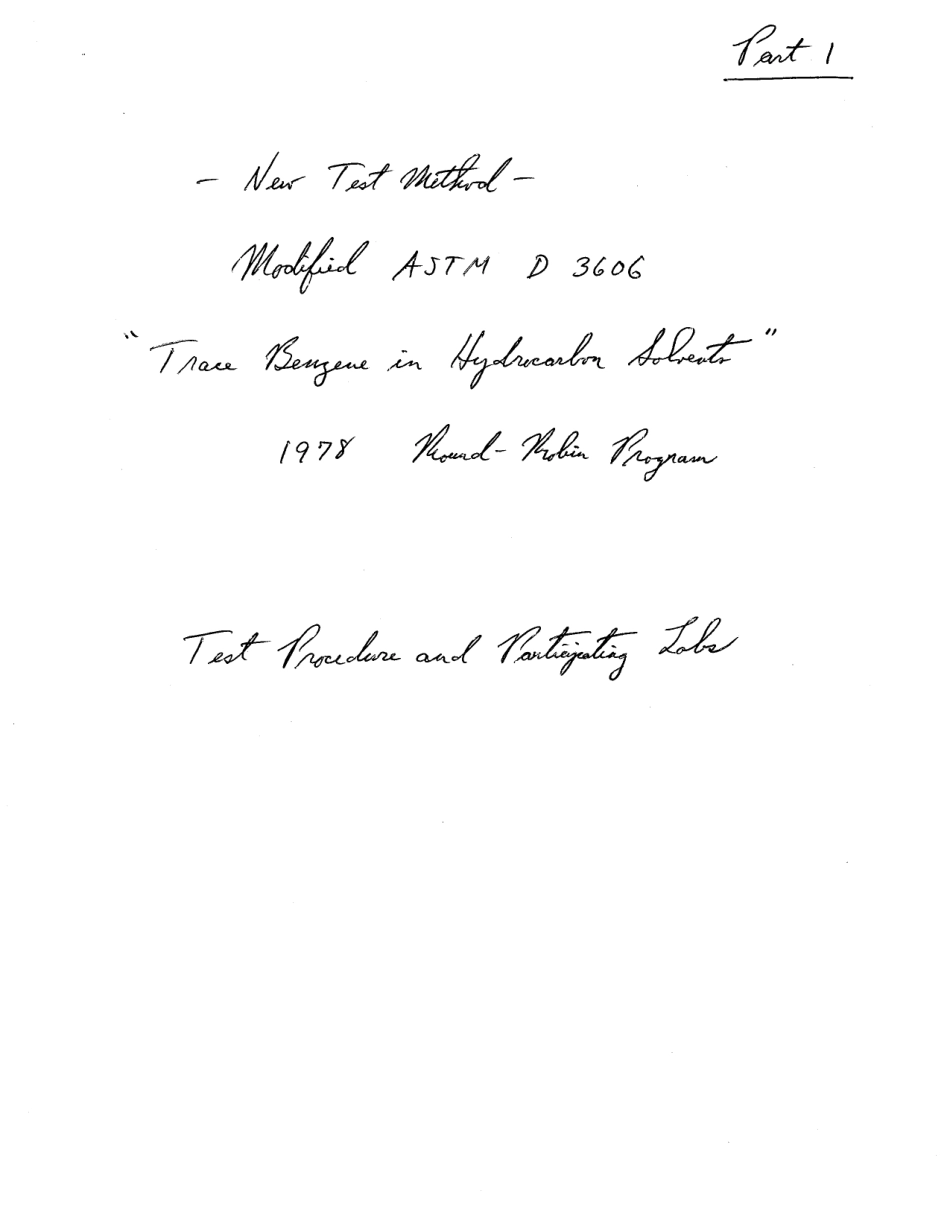 Part 1
- New Test Method -
Modified ASTM D 3606
"Trace Benzene in Hydrocarbon Solvents"
1978 Round-Robin Program
Test Procedure and Participating Labs